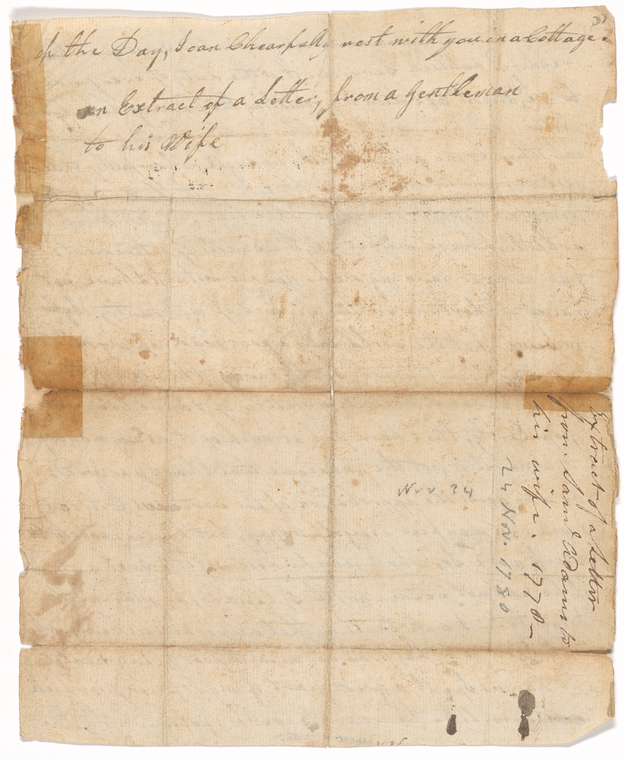 of the Day, I can Chearfully rest with you in a Cottage.
an Extract of a Letter, from a Gentleman
to his Wife
Extract of a Letter
from Saml Adams to
his wife. 1778–
24 Nov. 1780
Nov. 24